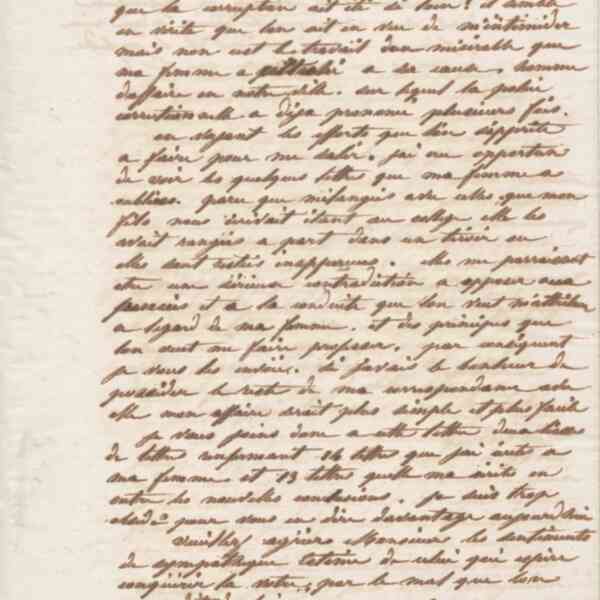 que la corruption ait été si loin? il semble
en vérité que lon ait en vue de m'intimider
mais non cest le travail dun misérable que
ma femme a attaché a sa cause, homme
daffaire en notre ville. sur lequel la police
correctionnelle a déja prononcé plusieurs fois.
en voyant les efforts que lon s'apprête
a faire pour me salir. jai cru opportun
de voir les quelques lettres que ma femme a
oubliées. parce que mélangées avec celles que mon
fils nous écrivait étant au collège elle les
avait rangées a part dans un tiroir ou
elles sont restées inapperçues. elles me parraissent
être une sérieuse contradiction a opposer aux
et a la conduite que lon veut m'attribuer
a légard de ma femme. et des principes que
lon veut me faire professer. par conséquent
je vous les envoie. si javais le bonheur de
posséder le reste de ma correspondance avec
elle mon affaire serait plus simple et plus facile
je vous joins donc a cette lettre deux liasses
de lettres renfermant 14 lettres que jai écrites a
ma femme et 13 lettres quelle ma écrites en
outre les nouvelles conclusions. je suis trop
obsédé pour vous en dire davantage aujourdhui
Veuillez agréer Monsieur les sentiments
de sympathique estime de celui qui espère
conquérir la votre, par le mal que lon